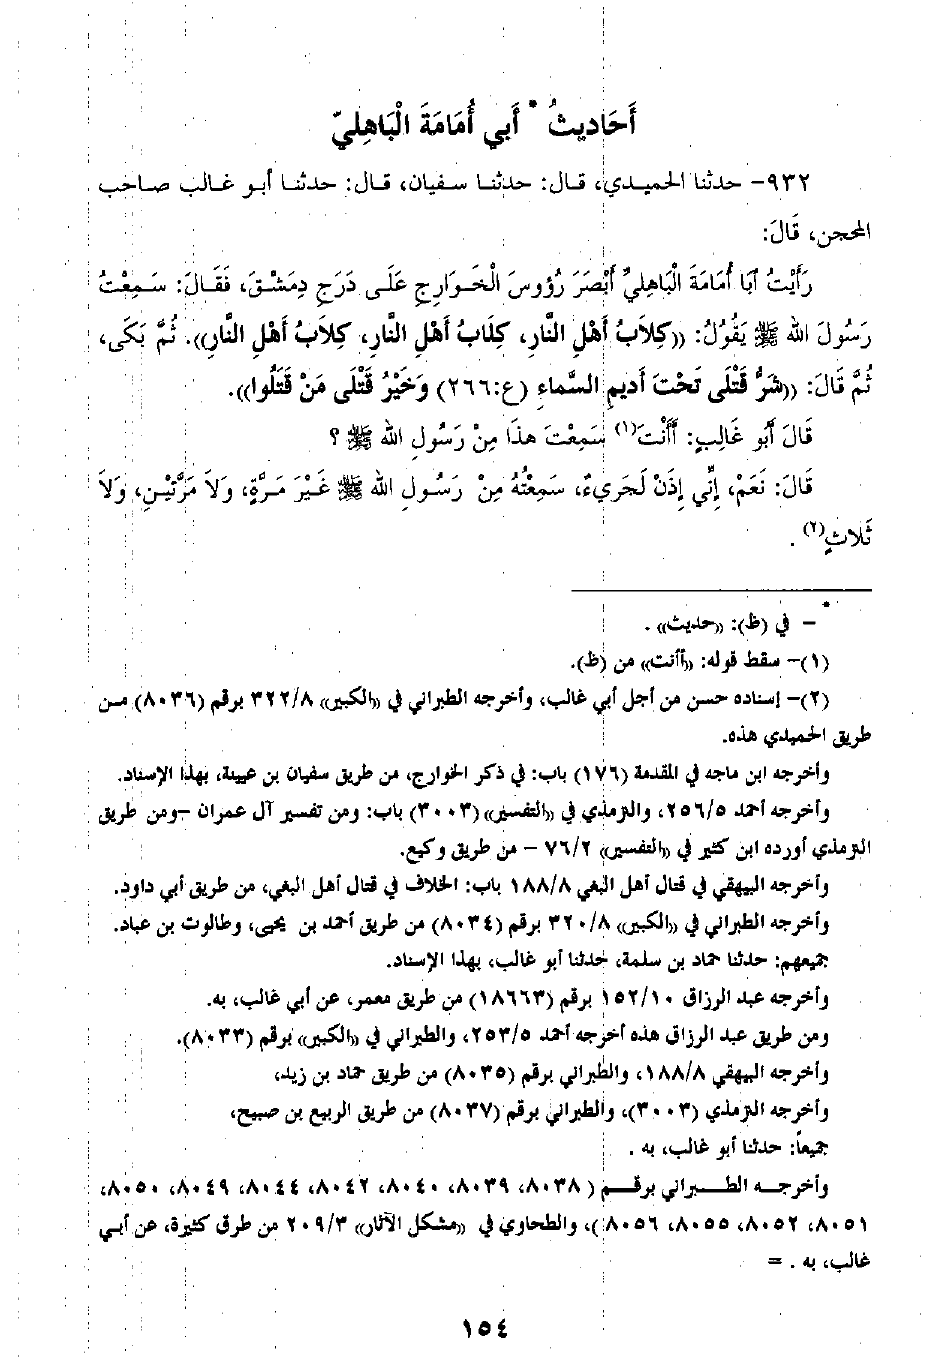 أَحَاديثُ * أَبي أُمَامَةَ الْبَاهِليّ
٩٣٢- حدثنا الحميدي، قال: حدثنا سفيان، قال: حدثنا أبو غالب صاحب
المحجن، قَالَ:
رَأَيْتُ أبَا أُمَامَةَ الْبَاهِليِّ أَبْصَرَ رُؤوسَ الْخَوَارِجِ عَلَى دَرَجِ دِمَشْقَ، فَقَالَ: سَمِعْتُ
رَسُولَ الله ﷺ يَقُولُ: ((كِلاَبُ أَهْلِ النَّارِ، كِلاَبُ أَهْلِ النَّارِ، كِلاَبُ أَهْلِ النَّارِ)). ثُمَّ بَكَى،
ثُمَّ قَالَ: ((شَرُّ قَتْلَى تَحْتَ أَديمِ السَّماءِ (ع:٢٦٦) وَخَيْرُ قَتْلَى مَنْ قَتَلُوا)).
قَالَ أَبُو غَالِبٍ: أَأَنْتَ(١) سَمِعْتَ هذَا مِنْ رَسُولِ الله ﷺ ؟
قَالَ: نَعَمْ، إِنِّي إِذَنْ لَجَرِيءٌ، سَمِعْتُهُ مِنْ رَسُولِ الله ﷺ غَيْرَ مَرَّةٍ، وَلاَ مَرَّتَيْنِ، وَلاَ
ثَلاثٍ(٢) .
* - في (ظ): ((حديث)) .
(١)- سقط قوله: ((أأنت)) من (ظ).
(٢)- إسناده حسن من أجل أبي غالب، وأخرجه الطبراني في ((الكبير)) ٣٢٢/٨ برقم (٨٠٣٦) من
طريق الحميدي هذه.
وأخرجه ابن ماجه في المقدمة (١٧٦) باب: في ذكر الخوارج، من طريق سفيان بن عيينة، بهذا الإسناد.
وأخرجه أحمد ٢٥٦/٥، والترمذي في ((التفسير)) (٣٠٠٣) باب: ومن تفسير آل عمران -ومن طريق
الترمذي أورده ابن كثير في ((التفسير)) ٧٦/٢ - من طريق وكيع.
وأخرجه البيهقي في قتال أهل البغي ١٨٨/٨ باب: الخلاف في قتال أهل البغي، من طريق أبي داود.
وأخرجه الطبراني في ((الكبير)) ٣٢٠/٨ برقم (٨٠٣٤) من طريق أحمد بن يحيى، وطالوت بن عباد.
جميعهم: حدثنا حماد بن سلمة، حدثنا أبو غالب، بهذا الإسناد.
وأخرجه عبد الرزاق ١٥٢/١٠ برقم (١٨٦٦٣) من طريق معمر، عن أبي غالب، به.
ومن طريق عبد الرزاق هذه أخرجه أحمد ٢٥٣/٥، والطبراني في ((الكبير)) برقم (٨٠٣٣).
وأخرجه البيهقي ١٨٨/٨، والطبراني برقم (٨٠٣٥) من طريق حماد بن زيد،
وأخرجه الترمذي (٣٠٠٣)، والطبراني برقم (٨٠٣٧) من طريق الربيع بن صبيح،
جميعاً: حدثنا أبو غالب، به .
وأخرجه الطبراني برقم ( ٨٠٣٨، ٨٠٣٩، ٨٠٤٠، ٨٠٤٢، ٨٠٤٤، ٨٠٤٩، ٨٠٥٠،
٨٠٥١، ٨٠٥٢، ٨٠٥٥، ٨٠٥٦ )، والطحاوي في ((مشكل الآثار)) ٢٠٩/٣ من طرق كثيرة، عن أبي
غالب، به . =
١٥٤